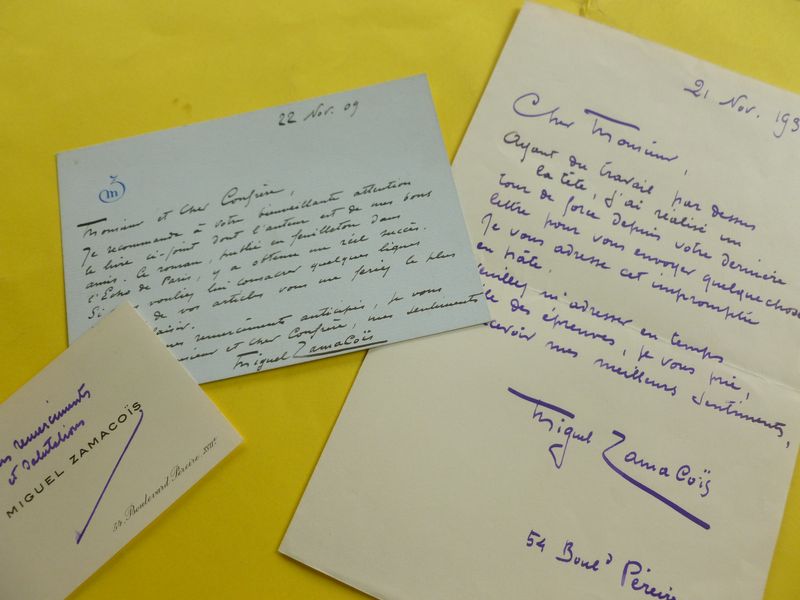 22 Nov. 09
mz
Monsieur et Cher Confrère,
Je recommande à votre bienveillante attention
le livre ci-joint dont l'auteur est de mes bons
amis. Le roman, publié en feuilleton dans
l'Echo de Paris, y a obtenu un réel succès.
Si vouliez lui consacrer quelques lignes
de vos articles vous me feriez le plus
remerciements anticipés, je vous
et cher Confrère, mes sentiments
Miguel Zamacoïs
21 Nov. 193
Cher Monsieur,
Ayant du travail par dessus
la tête, j'ai réalisé un
tour de force depuis votre dernière
lettre pour vous envoyer quelque chose
Je vous adresse cet impromptu
en hâte.
m'adresser en temps
des épreuves, je vous prie,
mes meilleurs sentiments,
Miguel Zamacoïs
54 Boul.d Péreire
remerciements
et salutations
MIGUEL ZAMACOÏS
54, Boulevard Péreire, XVII.e